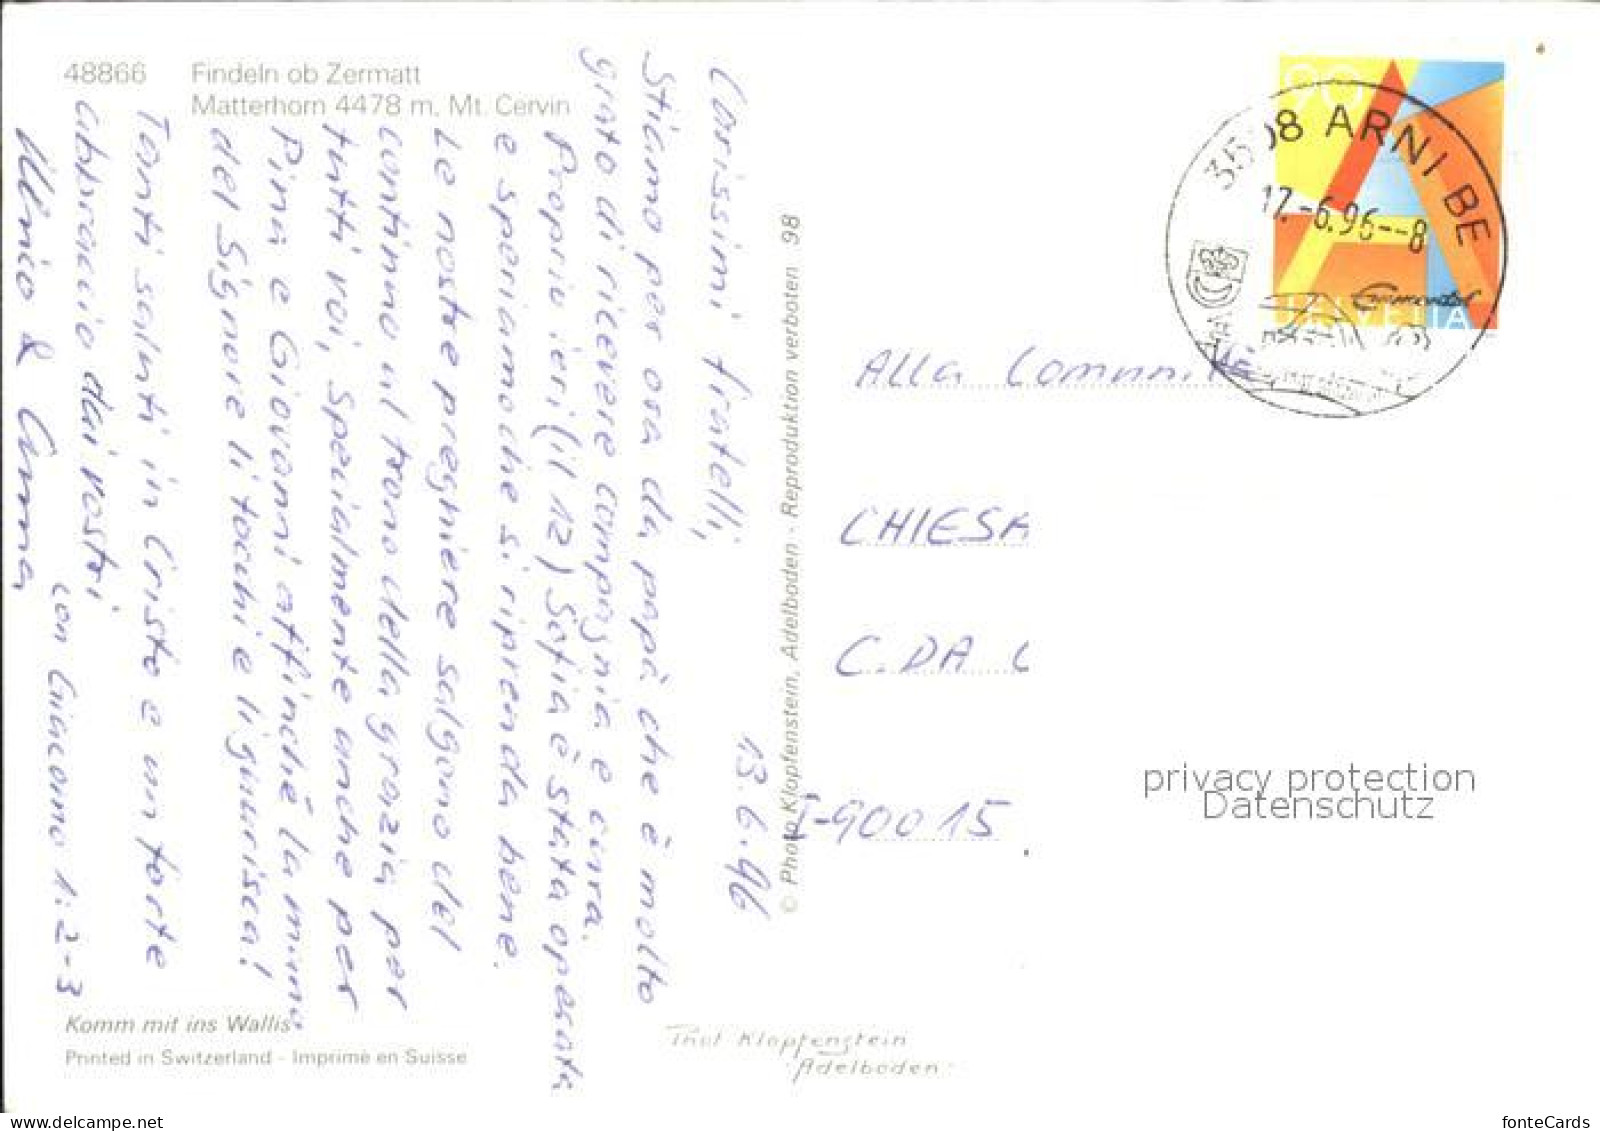 48866 Findeln ob Zermatt
Matterhorn 4478 m, Mt. Cervin
13.6.96
Carissimi fratelli,
Stiamo per ora da papà che è molto
grato di ricevere compagnia e cura.
Proprio ieri (il 12) Sofia è stata operata
e speriamo che si riprenda bene.
Le nostre preghiere salgono del
continuo al trono della grazia per
tutti voi, specialmente anche per
Pina e Giovanni affinché la mano
del Signore li tocchi e li guarisca!
Tanti saluti in Cristo e un forte
abbraccio dai vostri
con Giacomo 1:2-3
& Anna
© Photo Klopfenstein, Adelboden · Reproduktion verboten 98
90
HELVETIA
3508 ARNI BE
17.-6.96--8
Emmental
Alla Comunità
CHIESA
C.DA C
I-90015
privacy protection
Datenschutz
Komm mit ins Wallis
Printed in Switzerland - Imprimé en Suisse
Phot Klopfenstein
Adelboden
fonteCards